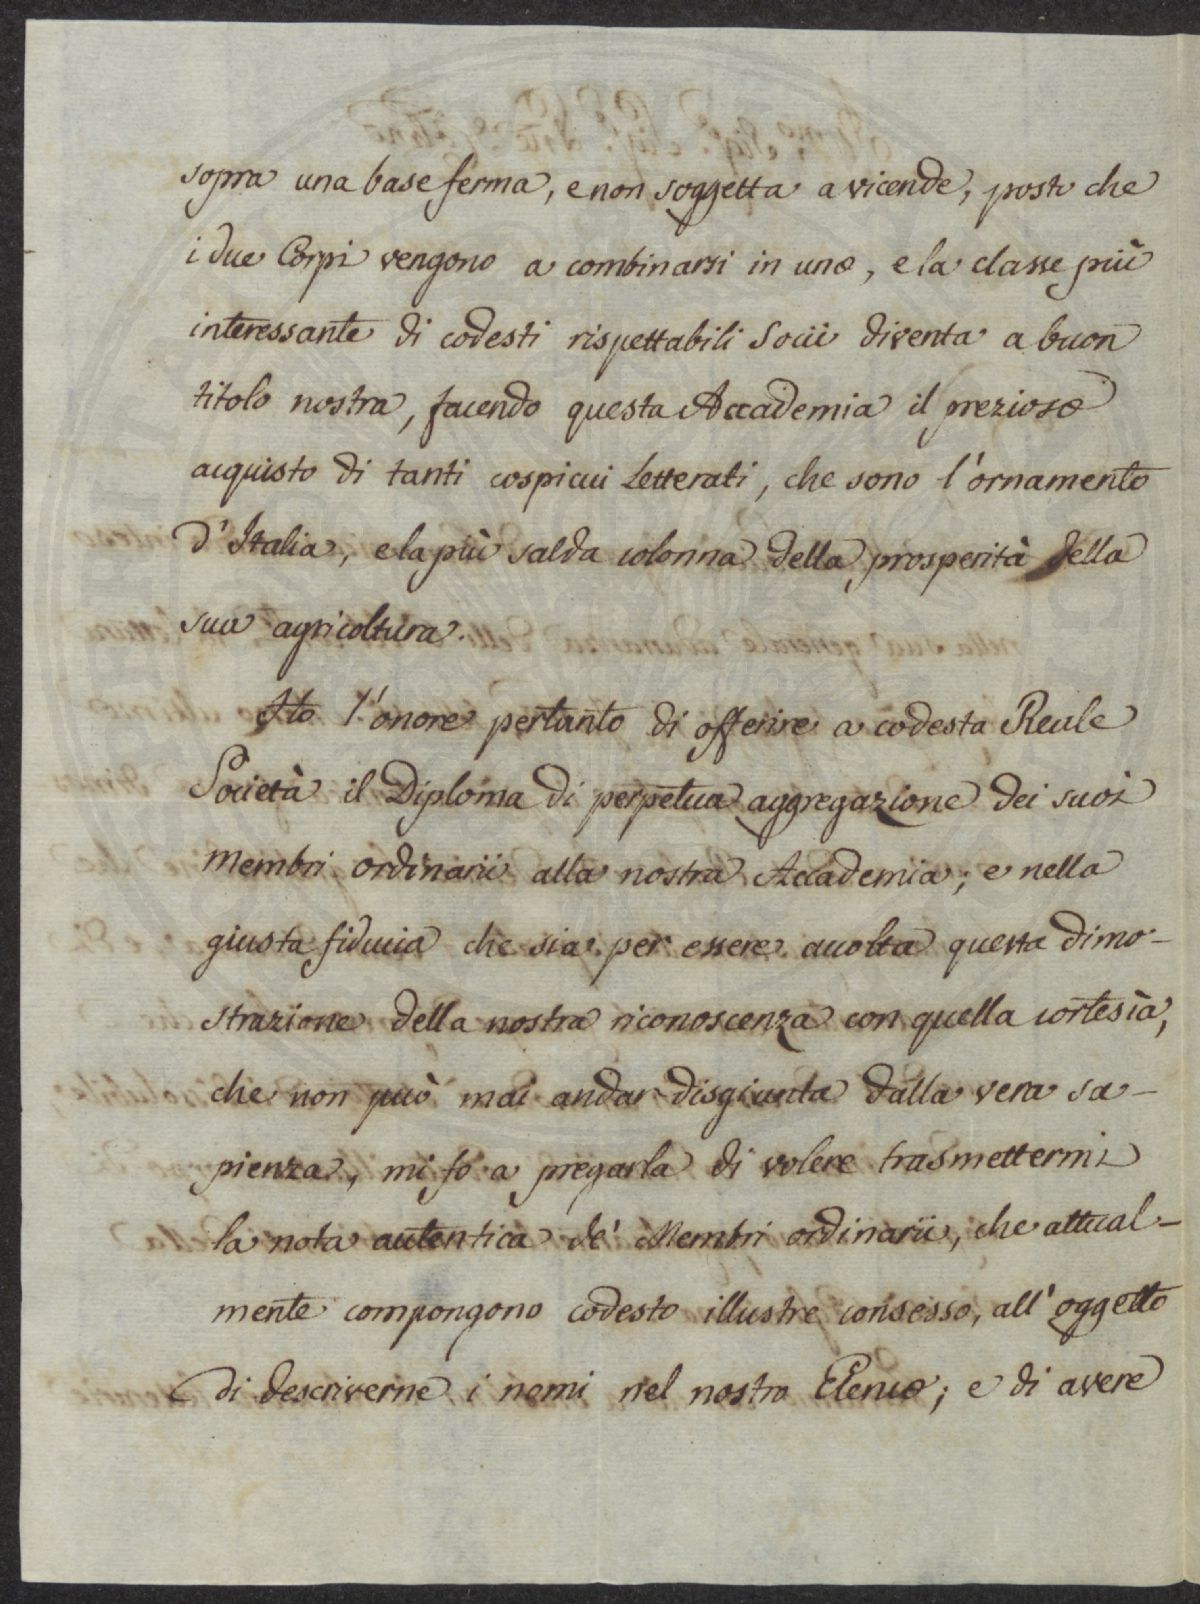 sopra una base ferma, e non soggetta a vicende, posto che
i due Corpi vengono a combinarsi in uno, e la classe più
interessante di codesti rispettabili Socii diventa a buon
titolo nostra, facendo questa Accademia il prezioso
acquisto di tanti cospicui Letterati, che sono l'ornamento
d'Italia, e la più salda colonna della prosperità della
sua agricoltura.
Ho l'onore pertanto di offerire a codesta Reale
Società il Diploma di perpetua aggregazione dei suoi
membri ordinarii alla nostra Accademia; e nella
giusta fiducia che sia per essere accolta questa dimo-
strazione della nostra riconoscenza con quella cortesìa,
che non può mai andar disgiunta dalla vera sa-
pienza, mi fo a pregarla di volere trasmettermi
la nota autentica de' Membri ordinarii, che attual-
mente compongono codesto illustre consesso, all'oggetto
di descriverne i nomi nel nostro Elenco; e di avere